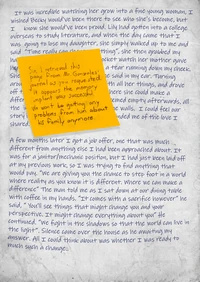 It was incredible watching her grow into a fine young woman, I
wished Becky would've been there to see who she's become, but
I know she would've been proud. Lily had gotten into a college
overseas to study literature, and when the day came that I
was going to lose my daughter, she simply walked up to me and
said "Time really can
thing", she then grabbed my
watch her mother gave
a tear running down my cheek.
said in my ear. Turning
with all her things, and drove
where she could make a
emptied
afterwards, all
the walls, I could feel our
me of the love I
shared
Sir, I retrieved this
page from Mr. Campbell's
journal as you requested.
It supports the memory
implant was successful.
We won't be getting any
problems from him about
his family anymore.
A few months later I got a job offer, one that was much
different from anything else I had been approached about. It
was for a janitor/mechanic position, but I had just been laid off
at my previous work, so I was trying to find anything that
would pay. "We are giving you the chance to step foot in a world
where reality as you know it is different. Where we can make a
difference" The man told me as I sat down at our dining table
with coffee in my hands. "It comes with a sacrifice however" he
said, "You'll see things that might change you and your
perspective. It might change everything about you" He
continued. "We fight in the shadows so that the world can live in
the light". Silence came over the house as he was awaiting my
answer. All I could think about was whether I was ready to
much such a change.